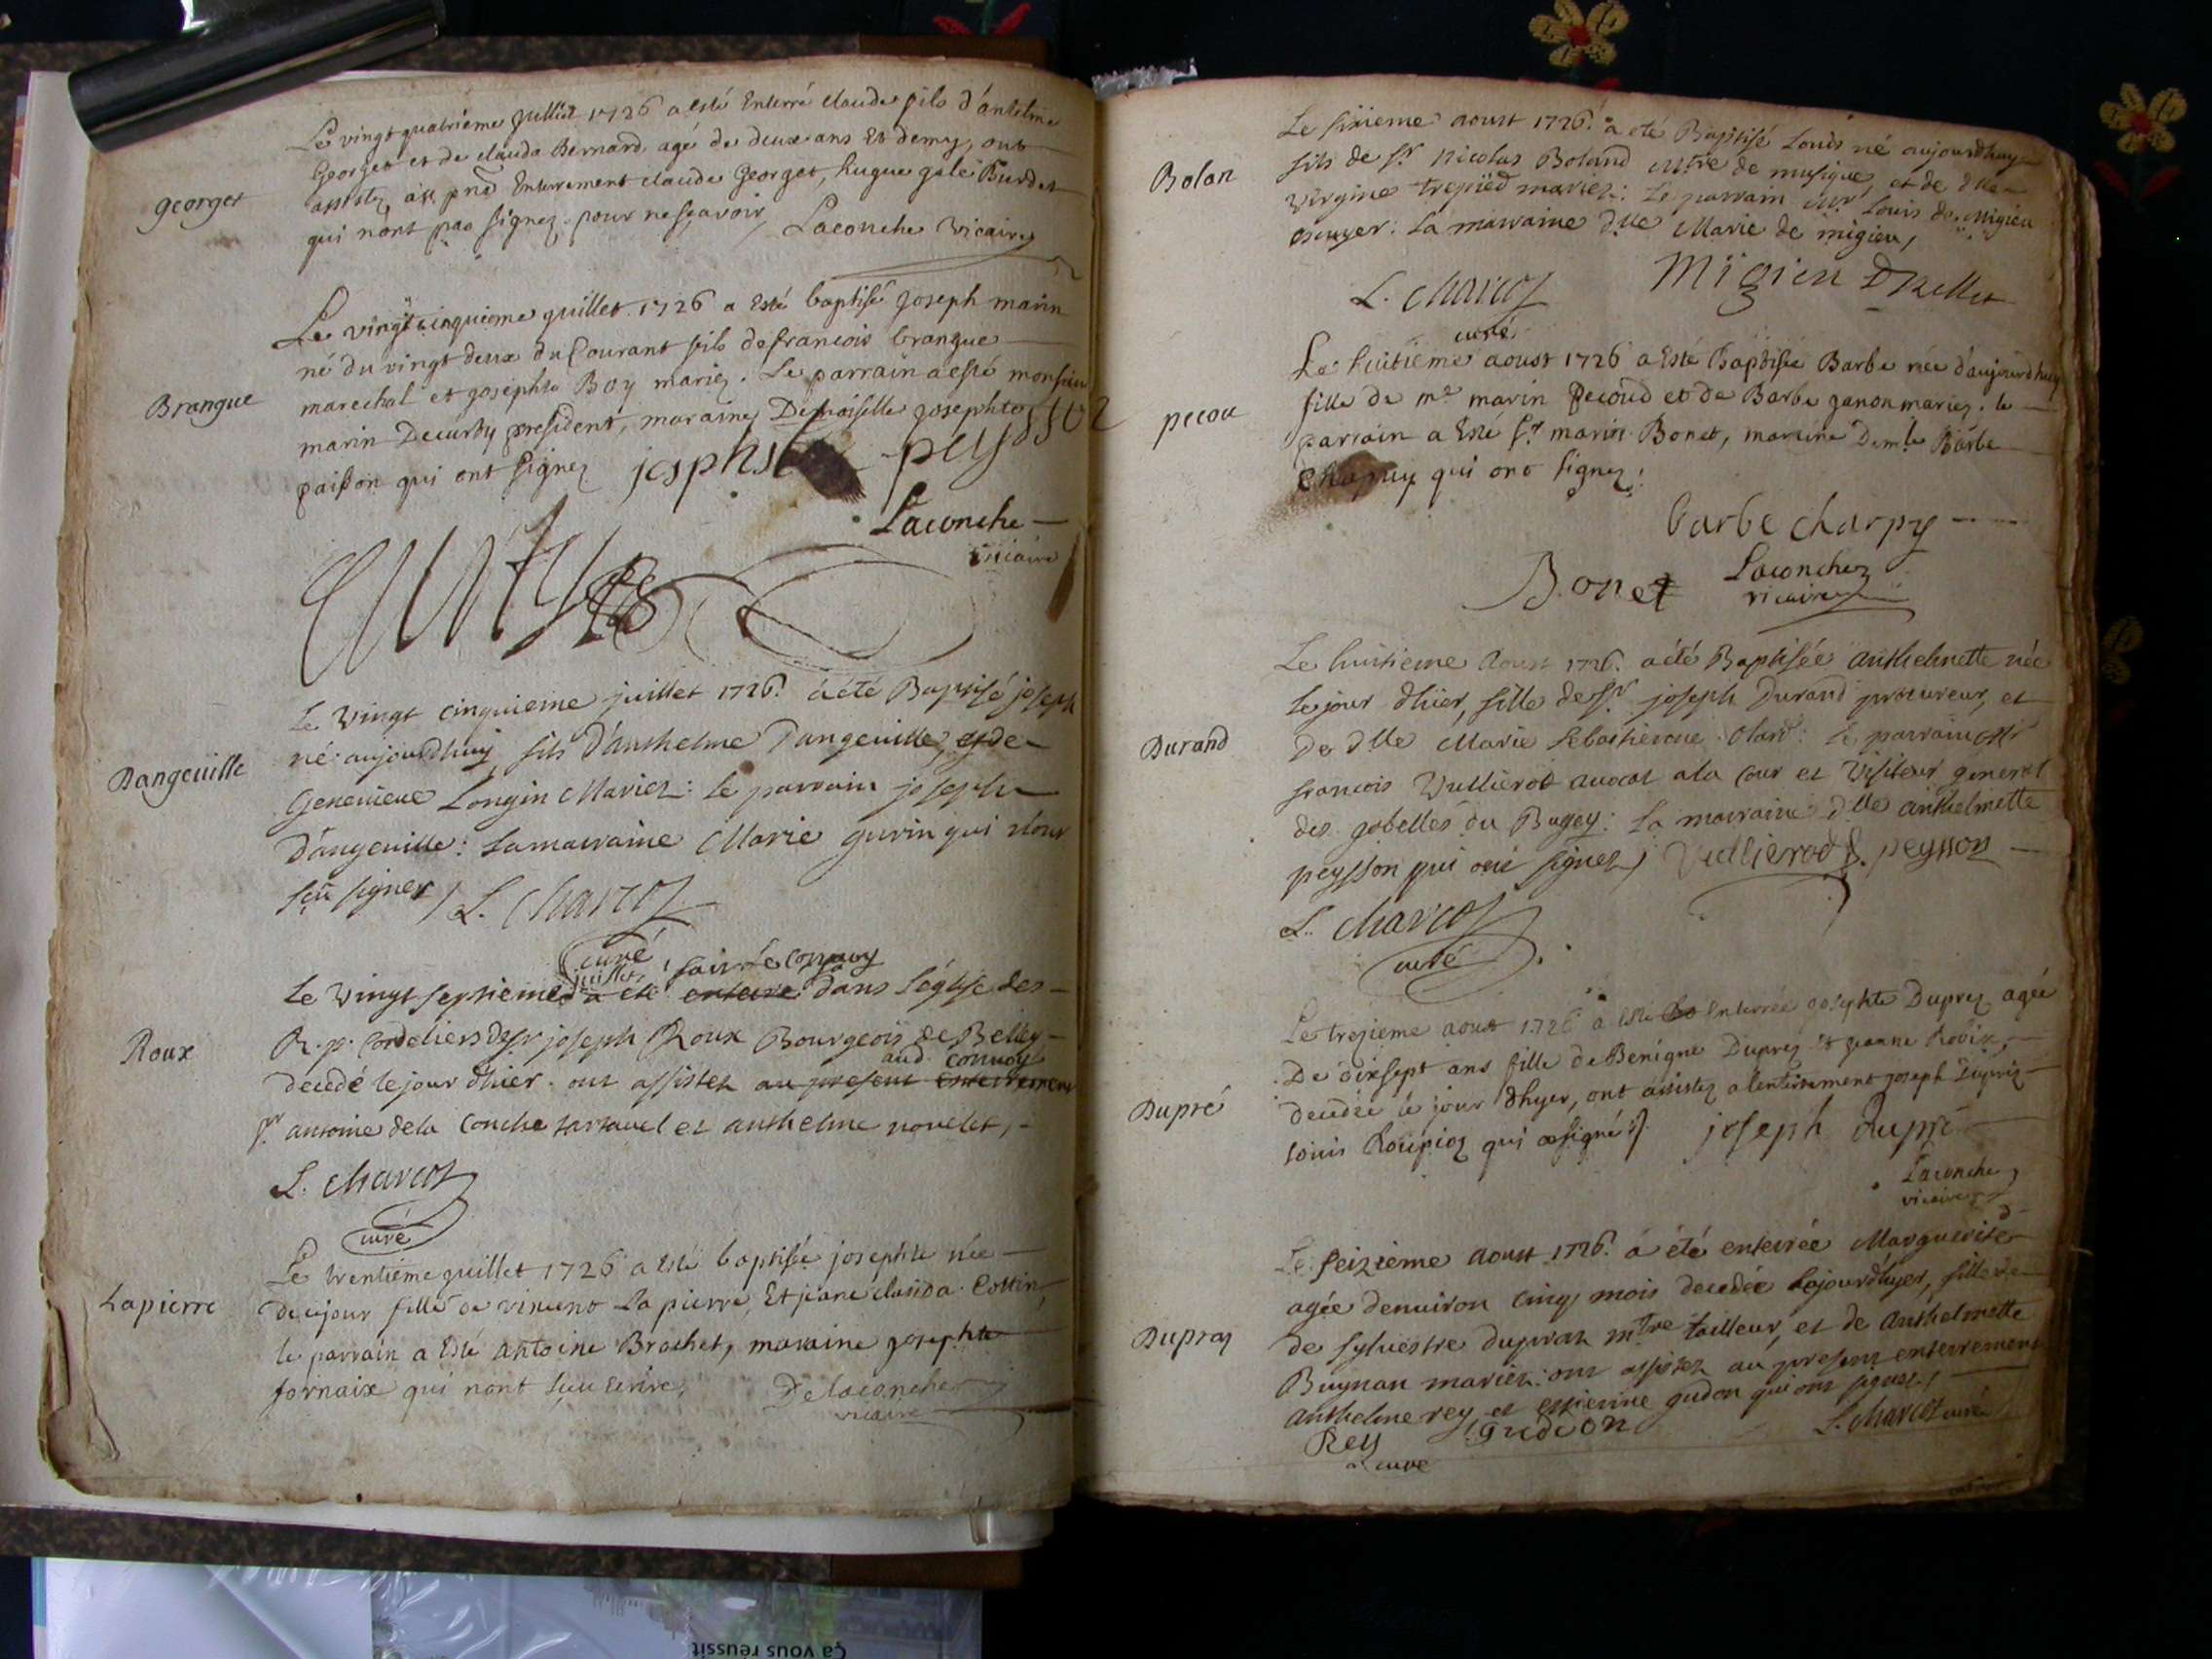 Le vingt quatrieme Juillet 1726 a esté Enterré claude fils d'antelme
Georget et de clauda Bernard, agé de deux ans Et demy, ont
assistez au pnt Enterrement claude Georget, hugue galé Burdet
georget
qui nont pas signez pour ne sçavoir, Laconche vicaire
Le vingt cinquieme juillet 1726 a Esté baptisé joseph marin
né du vingt deux du Courant fils de francois brangue
marechal et josephte Boy mariez. Le parrain a esté monsieur
Brangue
marin Decurty president, maraine Demoiselle josephte
paisson qui ont signez josphste peysson
Laconche
vicaire
Le vingt cinquieme juillet 1726. a été Baptisé joseph
né aujourdhuy, fils d'anthelme Dangeuille, et de
Dangeuille
Genevieve Longin Mariez: le parrain joseph
Dangeuille: La marraine Marie gurin qui n'ont
sçu signer / L. Charcot
curé
Le vingt septieme juillet a été fait le convoy enterré dans l'église des
Roux
R. p. Cordeliers de sr joseph Roux Bourgeois de Belley
decedé le jour d'hier. ont assistez au present enterrement aud. convoy
sr antoine de la Conche sarravel et anthelme novelet,
L. Charcot
curé
Le trentieme juillet 1726 a Esté baptisée josephte née
Lapierre
de ce jour fille de vincent La pierre, Et jeane clauda Cottin,
le parrain a Esté antoine Brochet, maraine josephte
fornaix qui nont sçu écrire, Delaconche
vicaire
Le sixieme aoust 1726. a été Baptisé Louis né aujourdhuy
Bolan
fils de sr Nicolas Boland Mtre de musique, et de dlle
virgine trepied mariez: Le parrain Mr Louis de Migieu
escuyer: La marraine dlle Marie de migieu,
L. Charcot Migieu
curé
Le huitieme aoust 1726 a Esté Baptisée Barbe née d'aujourdhuy
pecou
fille de me marin Pecoud et de Barbe ganon mariez. le
parrain a Esté sr marin Bonet, maraine Demlle Barbe
Charpy qui ont signez.
barbe charpy
Bonet Laconche
vicaire
Le huitieme Aoust 1726. a été Baptisée anthelmette née
le jour d'hier, fille de sr joseph Durand procureur, et
Durand
De dlle Marie Sebastienne Olard: Le parrain Mr
francois Vullierod avocat a la Cour et Visiteur general
des gabelles du Bugey: La marraine dlle anthelmette
peysson qui ont signez, Vullierod peysson
L. Charcot
curé
Le trezieme aoust 1726 a esté Enterrée josephte Duprez agée
De dixsept ans fille de Benigne Duprez et jeanne Robin,
Dupré
decedée le jour d'hyer, ont assistez a lenterrement joseph Duprez
Louis Roupioz qui a signé joseph dupré
Laconche
vicaire
Le seizieme aoust 1726. a été enterrée Marguerite
agée denuiron cinq mois decedée le jour d'hyer, fille de
Dupraz
de sylvestre dupraz mtre tailleur, et de Anthelmette
Bugnan mariez: ont assistez au present enterrement
anthelme rey et estienne gudon qui ont signez,
Rey gudeon L. Charcot curé
curé
Ça vous réussit